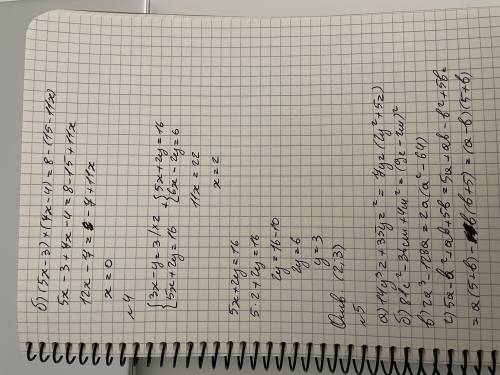 б) (5x-3)+(4x-4)=8-(15-11x)
5x-3+7x-4=8-15+11x
12x-7=-7+11x
x=0
№4
{3x-y=3 /×2
{5x+2y=16
+{5x+2y=16
{6x-2y=6
11x=22
x=2
5x+2y=16
5·2+2y=16
2y=16-10
2y=6
y=3
Отв (2;3)
№5
a) 14y³z+35yz²=7yz(2y²+5z)
в) 2a³-128a=2a(a²-64)
г) 5a-b²+ab+5b=5a+ab-b²+5b=
=a(5+b)-b(b+5)=(a-b)(5+b)